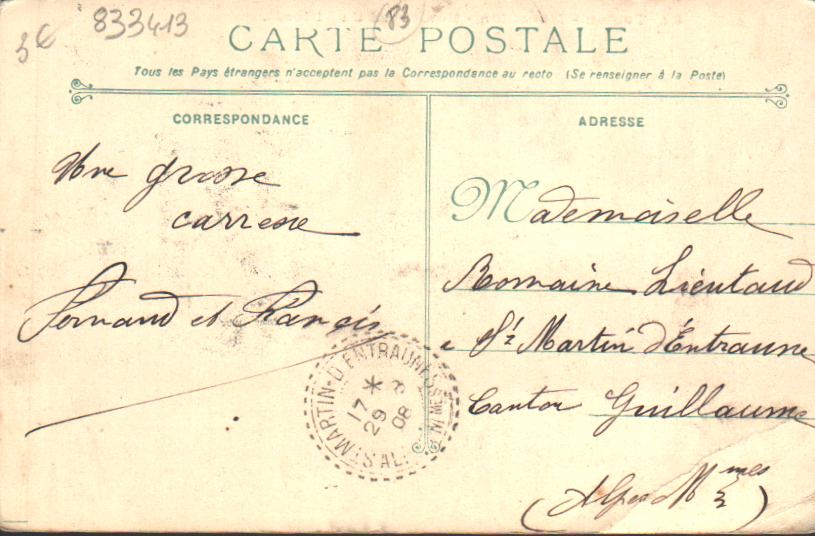 3€ 833413 83
CARTE POSTALE
Tous les Pays étrangers n'acceptent pas la Correspondance au recto (Se renseigner à la Poste)
CORRESPONDANCE
Une grosse
carresse
Fernand et Francis
ADRESSE
Mademoiselle
Romaine Lieutaud
St Martin d'Entraunes
Canton Guillaume
(Alpes Mmes)
ST MARTIN-D'ENTRAUNES
17 *
29 8
08